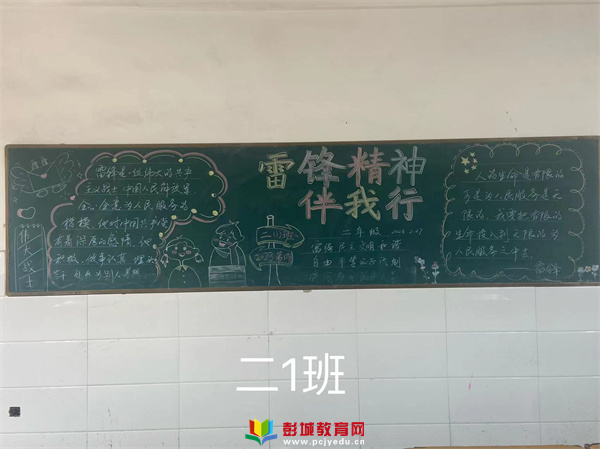 雷锋精神
伴我行
雷锋是一位伟大的共产
主义战士
中国人民解放军
全心全意为人民服务的
楷模
他对中国共产党
有着深厚的感情
做事认真
伟大战士
二(1)班
二年级
富强民主文明和谐
自由平等公正法制
人的生命是有限的
可是为人民服务是无
限的，我要把有限的
生命投入到无限的为
人民服务之中去
雷锋
二1班
彭城教育网
www.pcjyedu.cn